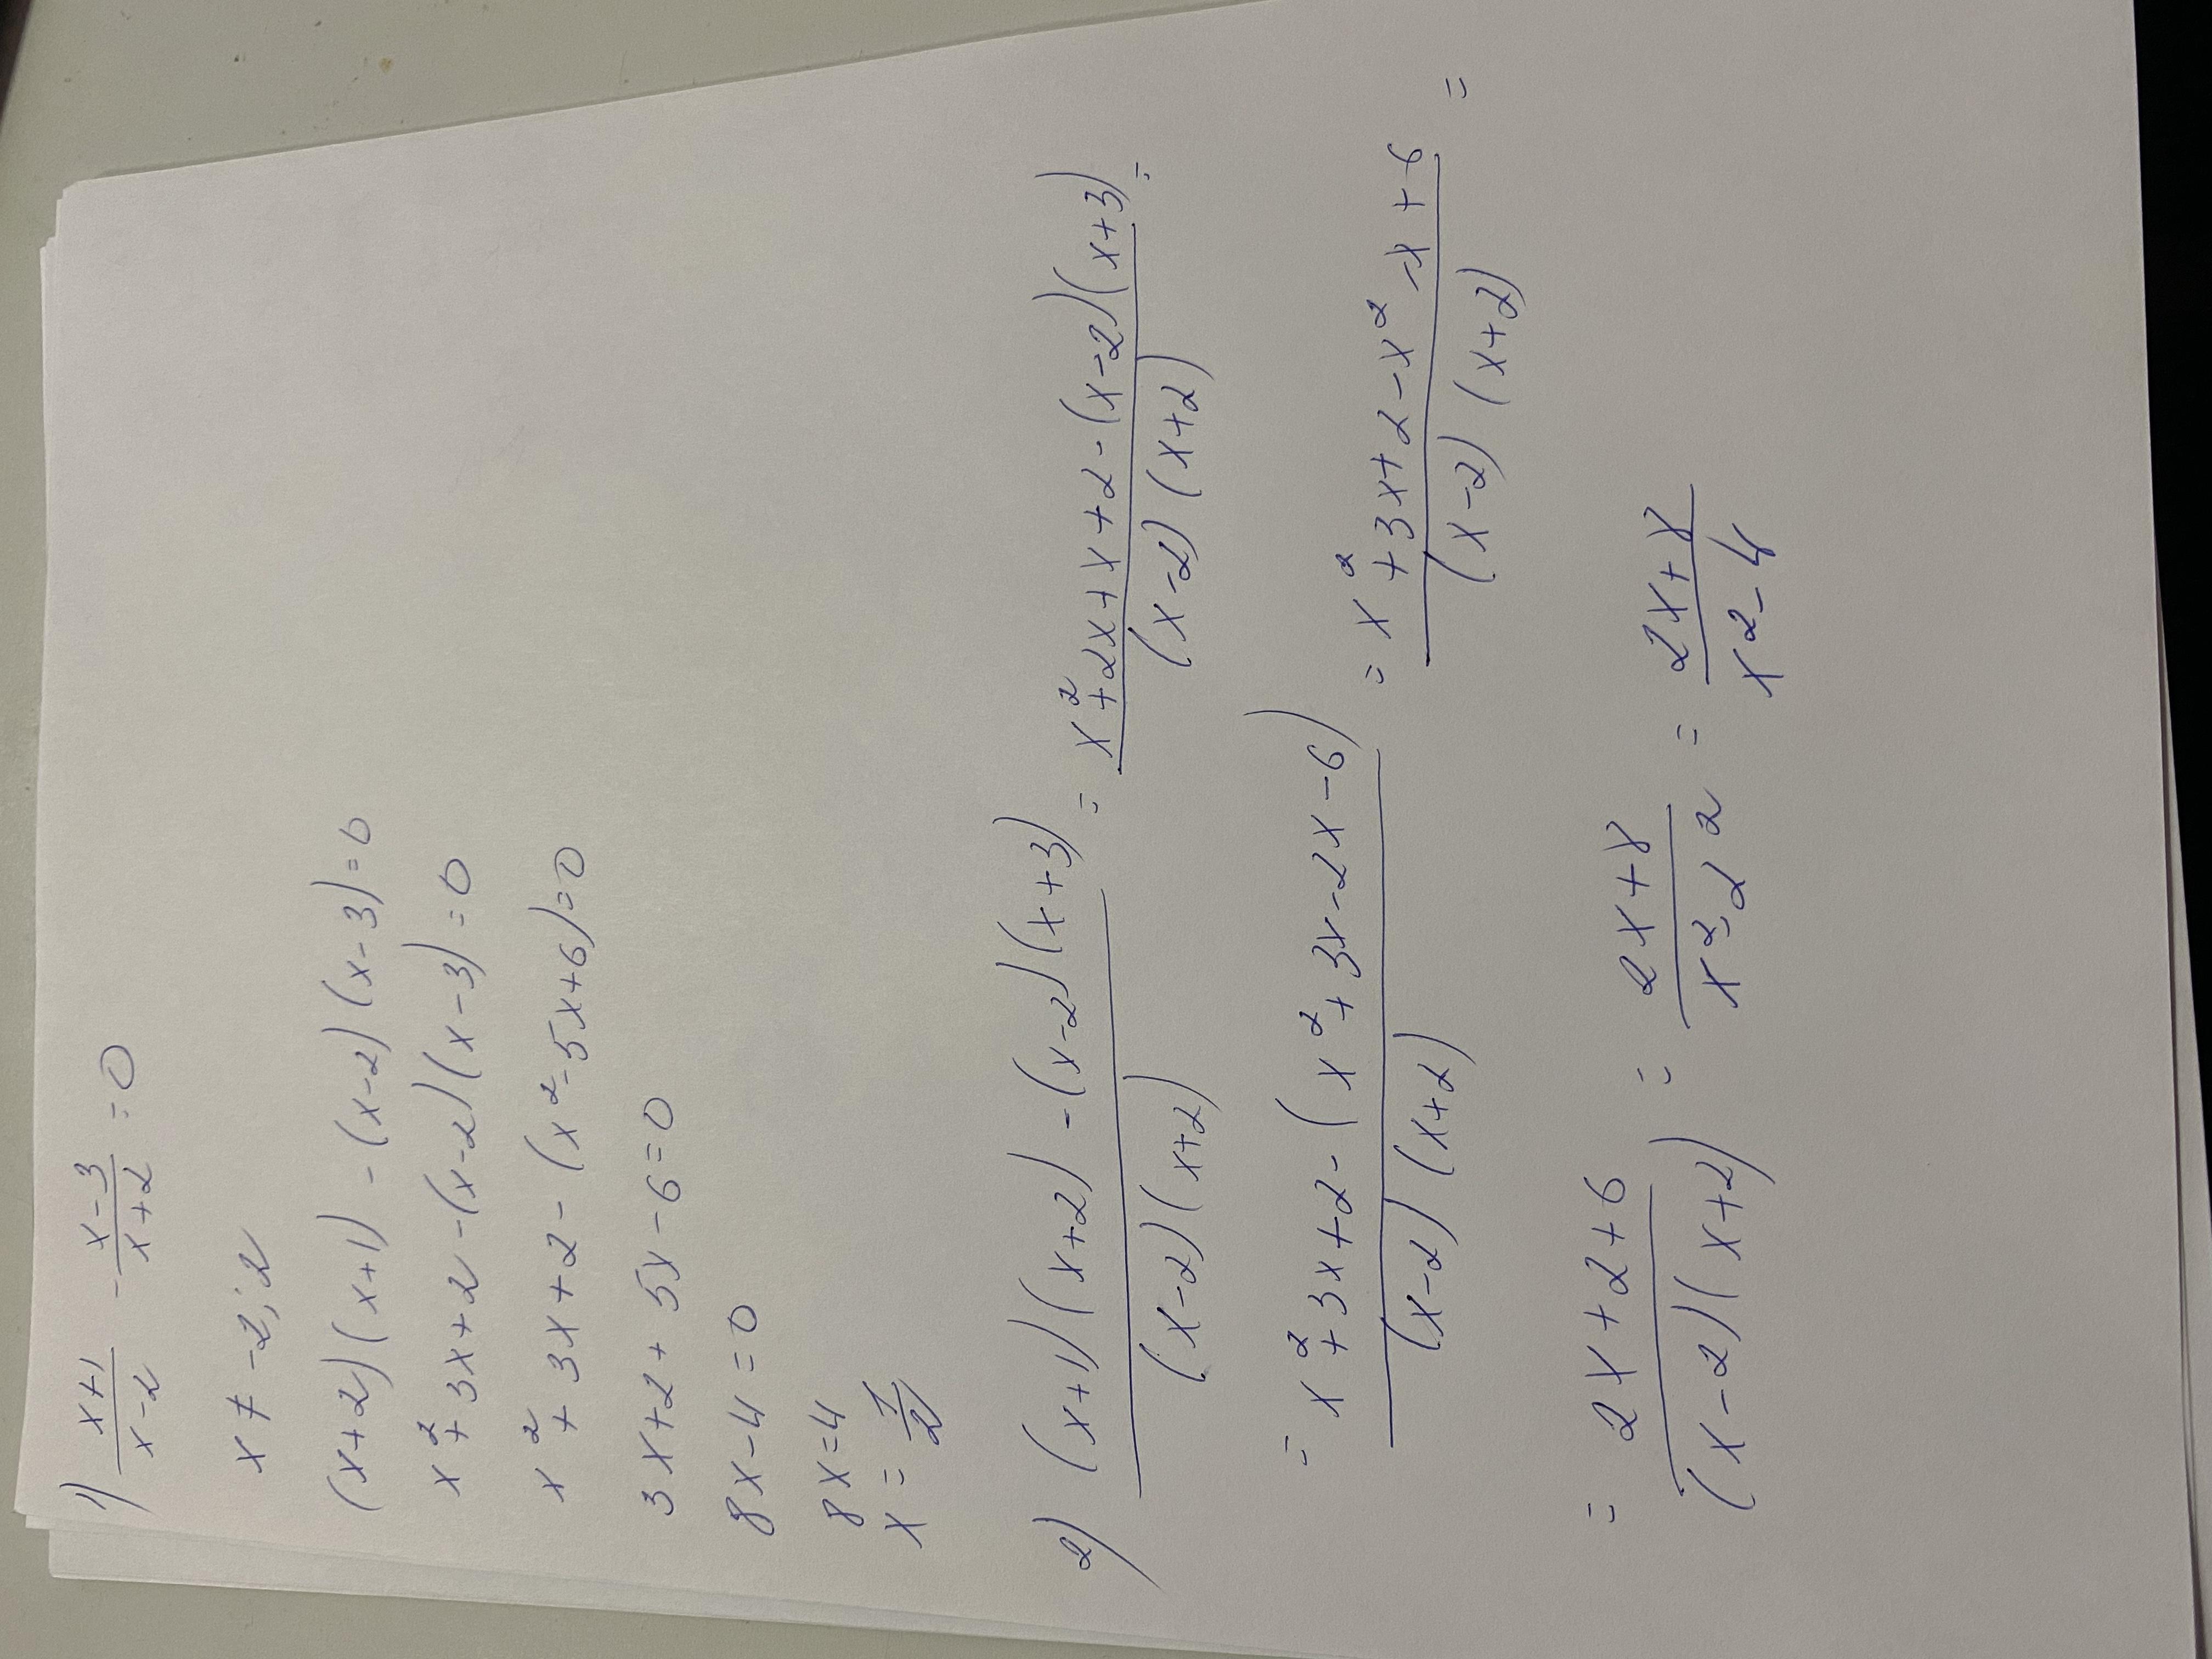 1) \frac{x+1}{x-2} - \frac{x-3}{x+2} = 0
x ≠ -2; 2
(x+2)(x+1) - (x-2)(x-3) = 0
x² + 3x + 2 - (x-2)(x-3) = 0
x² + 3x + 2 - (x² - 5x + 6) = 0
3x + 2 + 5x - 6 = 0
8x - 4 = 0
8x = 4
x = \frac{1}{2}
2) \frac{(x+1)(x+2) - (x-2)(x+3)}{(x-2)(x+2)} = \frac{x² + 2x + x + 2 - (x-2)(x+3)}{(x-2)(x+2)} =
= \frac{x² + 3x + 2 - (x² + 3x - 2x - 6)}{(x-2)(x+2)} = \frac{x² + 3x + 2 - x² - x + 6}{(x-2)(x+2)} =
= \frac{2x + 2 + 6}{(x-2)(x+2)} = \frac{2x + 8}{x² - 2²} = \frac{2x + 8}{x² - 4}